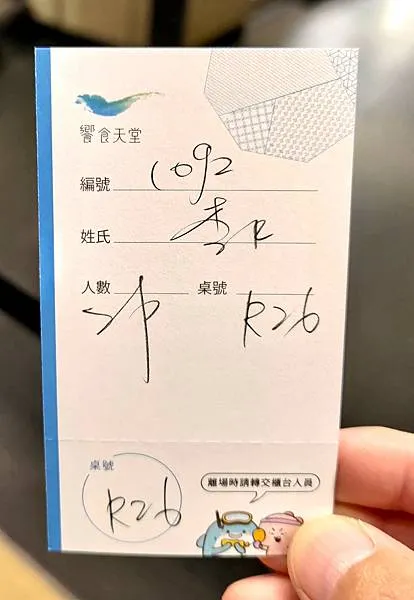 饗食天堂
編號 1092
姓氏 李R
人數 2中 桌號 R26
桌號
R26
離場時請轉交櫃台人員